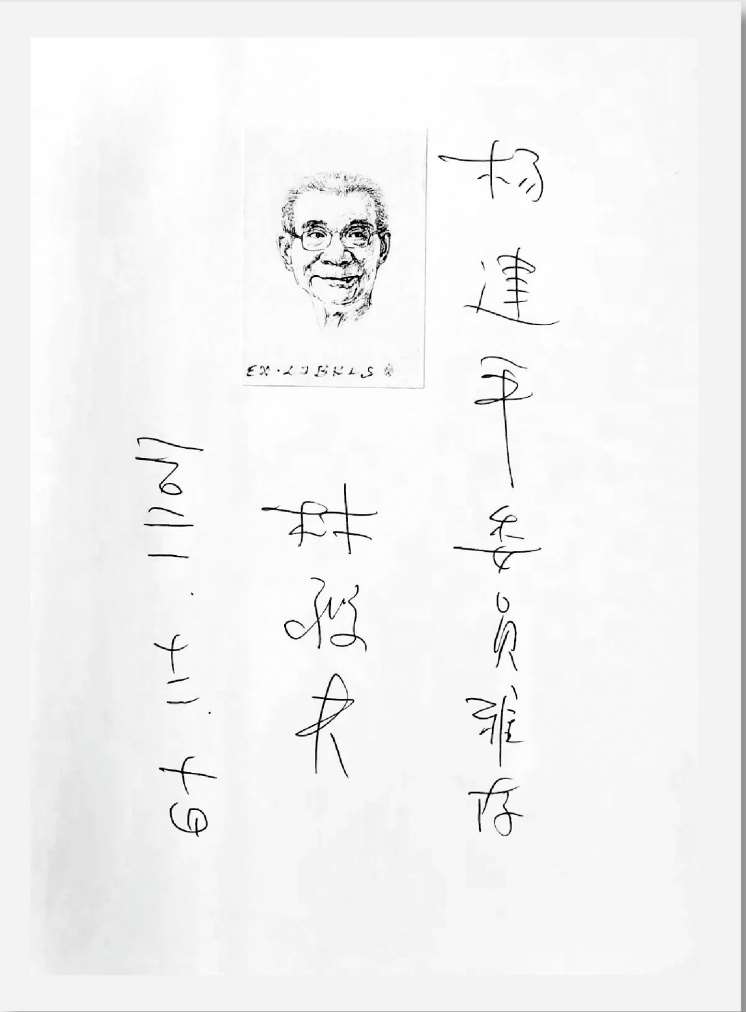 杨建平委员雅存
EX·LIBRIS
林毅夫
二〇二二.十二.十日